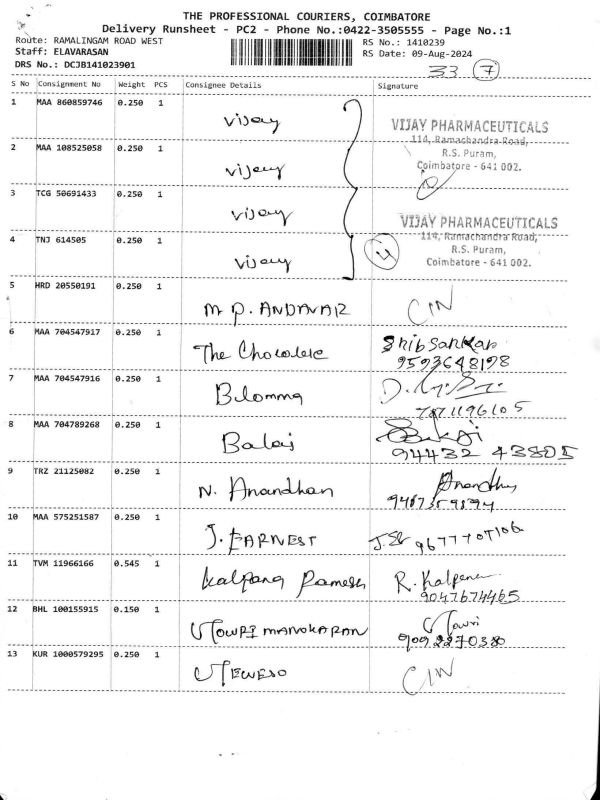 THE PROFESSIONAL COURIERS, COIMBATORE
Delivery Runsheet - PC2 - Phone No.:0422-3505555 - Page No.:1
Route: RAMALINGAM ROAD WEST
Staff: ELAVARASAN
DRS No.: DCJB141023901
RS No.: 1410239
RS Date: 09-Aug-2024
33 7
S No Consignment No Weight PCS Consignee Details Signature
1 MAA 860859746 0.250 1 Vijay
VIJAY PHARMACEUTICALS
114, Ramachandra Road,
R.S. Puram,
Coimbatore - 641 002.
2 MAA 108525058 0.250 1 Vijay
3 TCG 50691433 0.250 1 Vijay
VIJAY PHARMACEUTICALS
114, Ramachandra Road,
R.S. Puram,
Coimbatore - 641 002.
4 TNJ 614505 0.250 1 Vijay
4
5 HRD 20550191 0.250 1 M P. ANDAVAR
6 MAA 704547917 0.250 1 The Chocolate
7 MAA 704547916 0.250 1
8 MAA 704789268 0.250 1 Balaj
94432 43805
9 TRZ 21125082 0.250 1 N. Anandhan
10 MAA 575251587 0.250 1 J. EARNEST
11 TVM 11966166 0.545 1 Kalpana Ramesh R. Kalpana
9047674465
12 BHL 100155915 0.150 1 MANOKARAN
13 KUR 1000579295 0.250 1